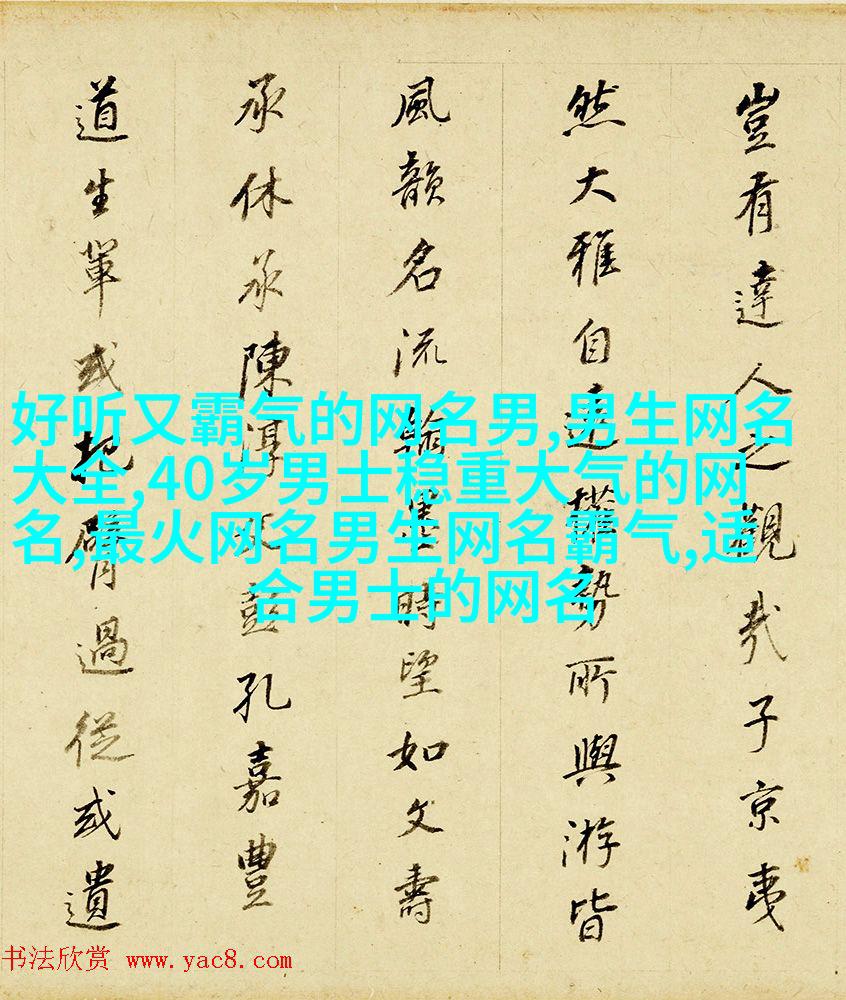 豈有達人之觀哉子京夷
然大雅自遠權勢所與游皆
風韻名流翰墨時望如文壽
承休承陳淳父彭孔嘉豐
道生輩或把臂過從或遺
好听又霸气的网名男,男生网名
大全,40岁男士稳重大气的网
名,最火网名男生网名霸气,适
合男士的网名
书法欣赏 www.yac8.com